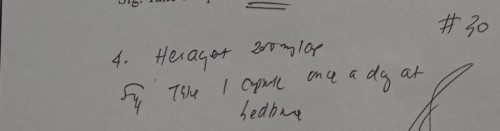 # 30
4. 200mg/cap
Sig Take 1 capsule once a day at
bedtime